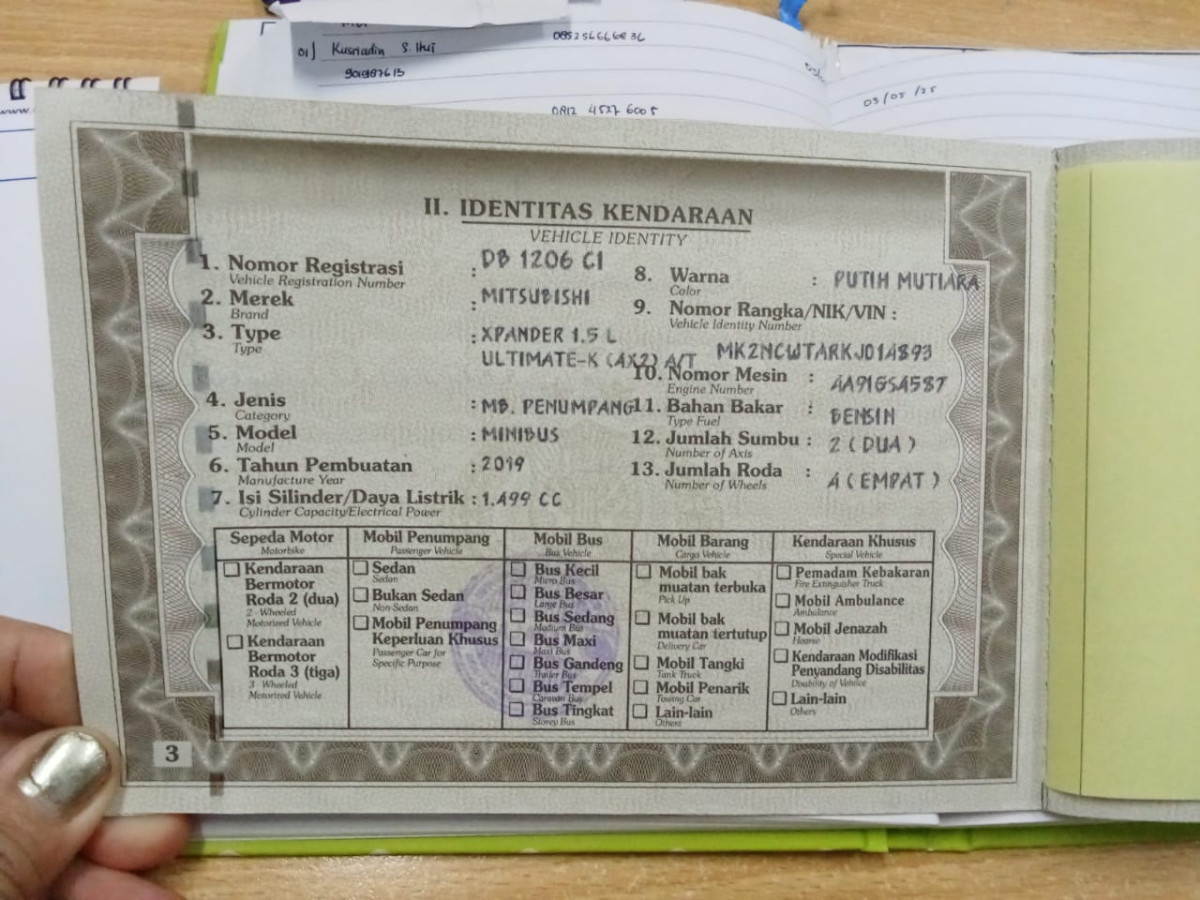 01) Kusriadin S. Hut
901987613
085256666836
0812 4527 6005
03/05/25
II. IDENTITAS KENDARAAN
VEHICLE IDENTITY
1. Nomor Registrasi : DB 1206 CI
Vehicle Registration Number
2. Merek : MITSUBISHI
Brand
3. Type : XPANDER 1.5 L
Type
ULTIMATE-K (4X2) A/T
4. Jenis : MB. PENUMPANG
Category
5. Model : MINIBUS
Model
6. Tahun Pembuatan : 2019
Manufacture Year
7. Isi Silinder/Daya Listrik : 1.499 CC
Cylinder Capacity/Electrical Power
8. Warna : PUTIH MUTIARA
Color
9. Nomor Rangka/NIK/VIN :
Vehicle Identity Number
MK2NCWTARKJ014893
10. Nomor Mesin : 4A91GS4587
Engine Number
11. Bahan Bakar : BENSIN
Type Fuel
12. Jumlah Sumbu : 2 (DUA)
Number of Axis
13. Jumlah Roda : 4 (EMPAT)
Number of Wheels
Sepeda Motor
Motorbike
Kendaraan
Bermotor
Roda 2 (dua)
2 - Wheeled
Motorized Vehicle
Kendaraan
Bermotor
Roda 3 (tiga)
3 - Wheeled
Motorized Vehicle
Mobil Penumpang
Passenger Vehicle
Sedan
Sedan
Bukan Sedan
Non Sedan
Mobil Penumpang
Keperluan Khusus
Passenger Car for
Specific Purpose
Mobil Bus
Bus Vehicle
Bus Kecil
Micro Bus
Bus Besar
Large Bus
Bus Sedang
Medium Bus
Bus Maxi
Maxi Bus
Bus Gandeng
Trailer Bus
Bus Tempel
Caravan Bus
Bus Tingkat
Storey Bus
Mobil Barang
Cargo Vehicle
Mobil bak
muatan terbuka
Pick Up
Mobil bak
muatan tertutup
Delivery Car
Mobil Tangki
Tank Truck
Mobil Penarik
Touring Car
Lain-lain
Others
Kendaraan Khusus
Special Vehicle
Pemadam Kebakaran
Fire Extinguisher Truck
Mobil Ambulance
Ambulance
Mobil Jenazah
Hearse
Kendaraan Modifikasi
Penyandang Disabilitas
Disability of Vehilce
Lain-lain
Others
3